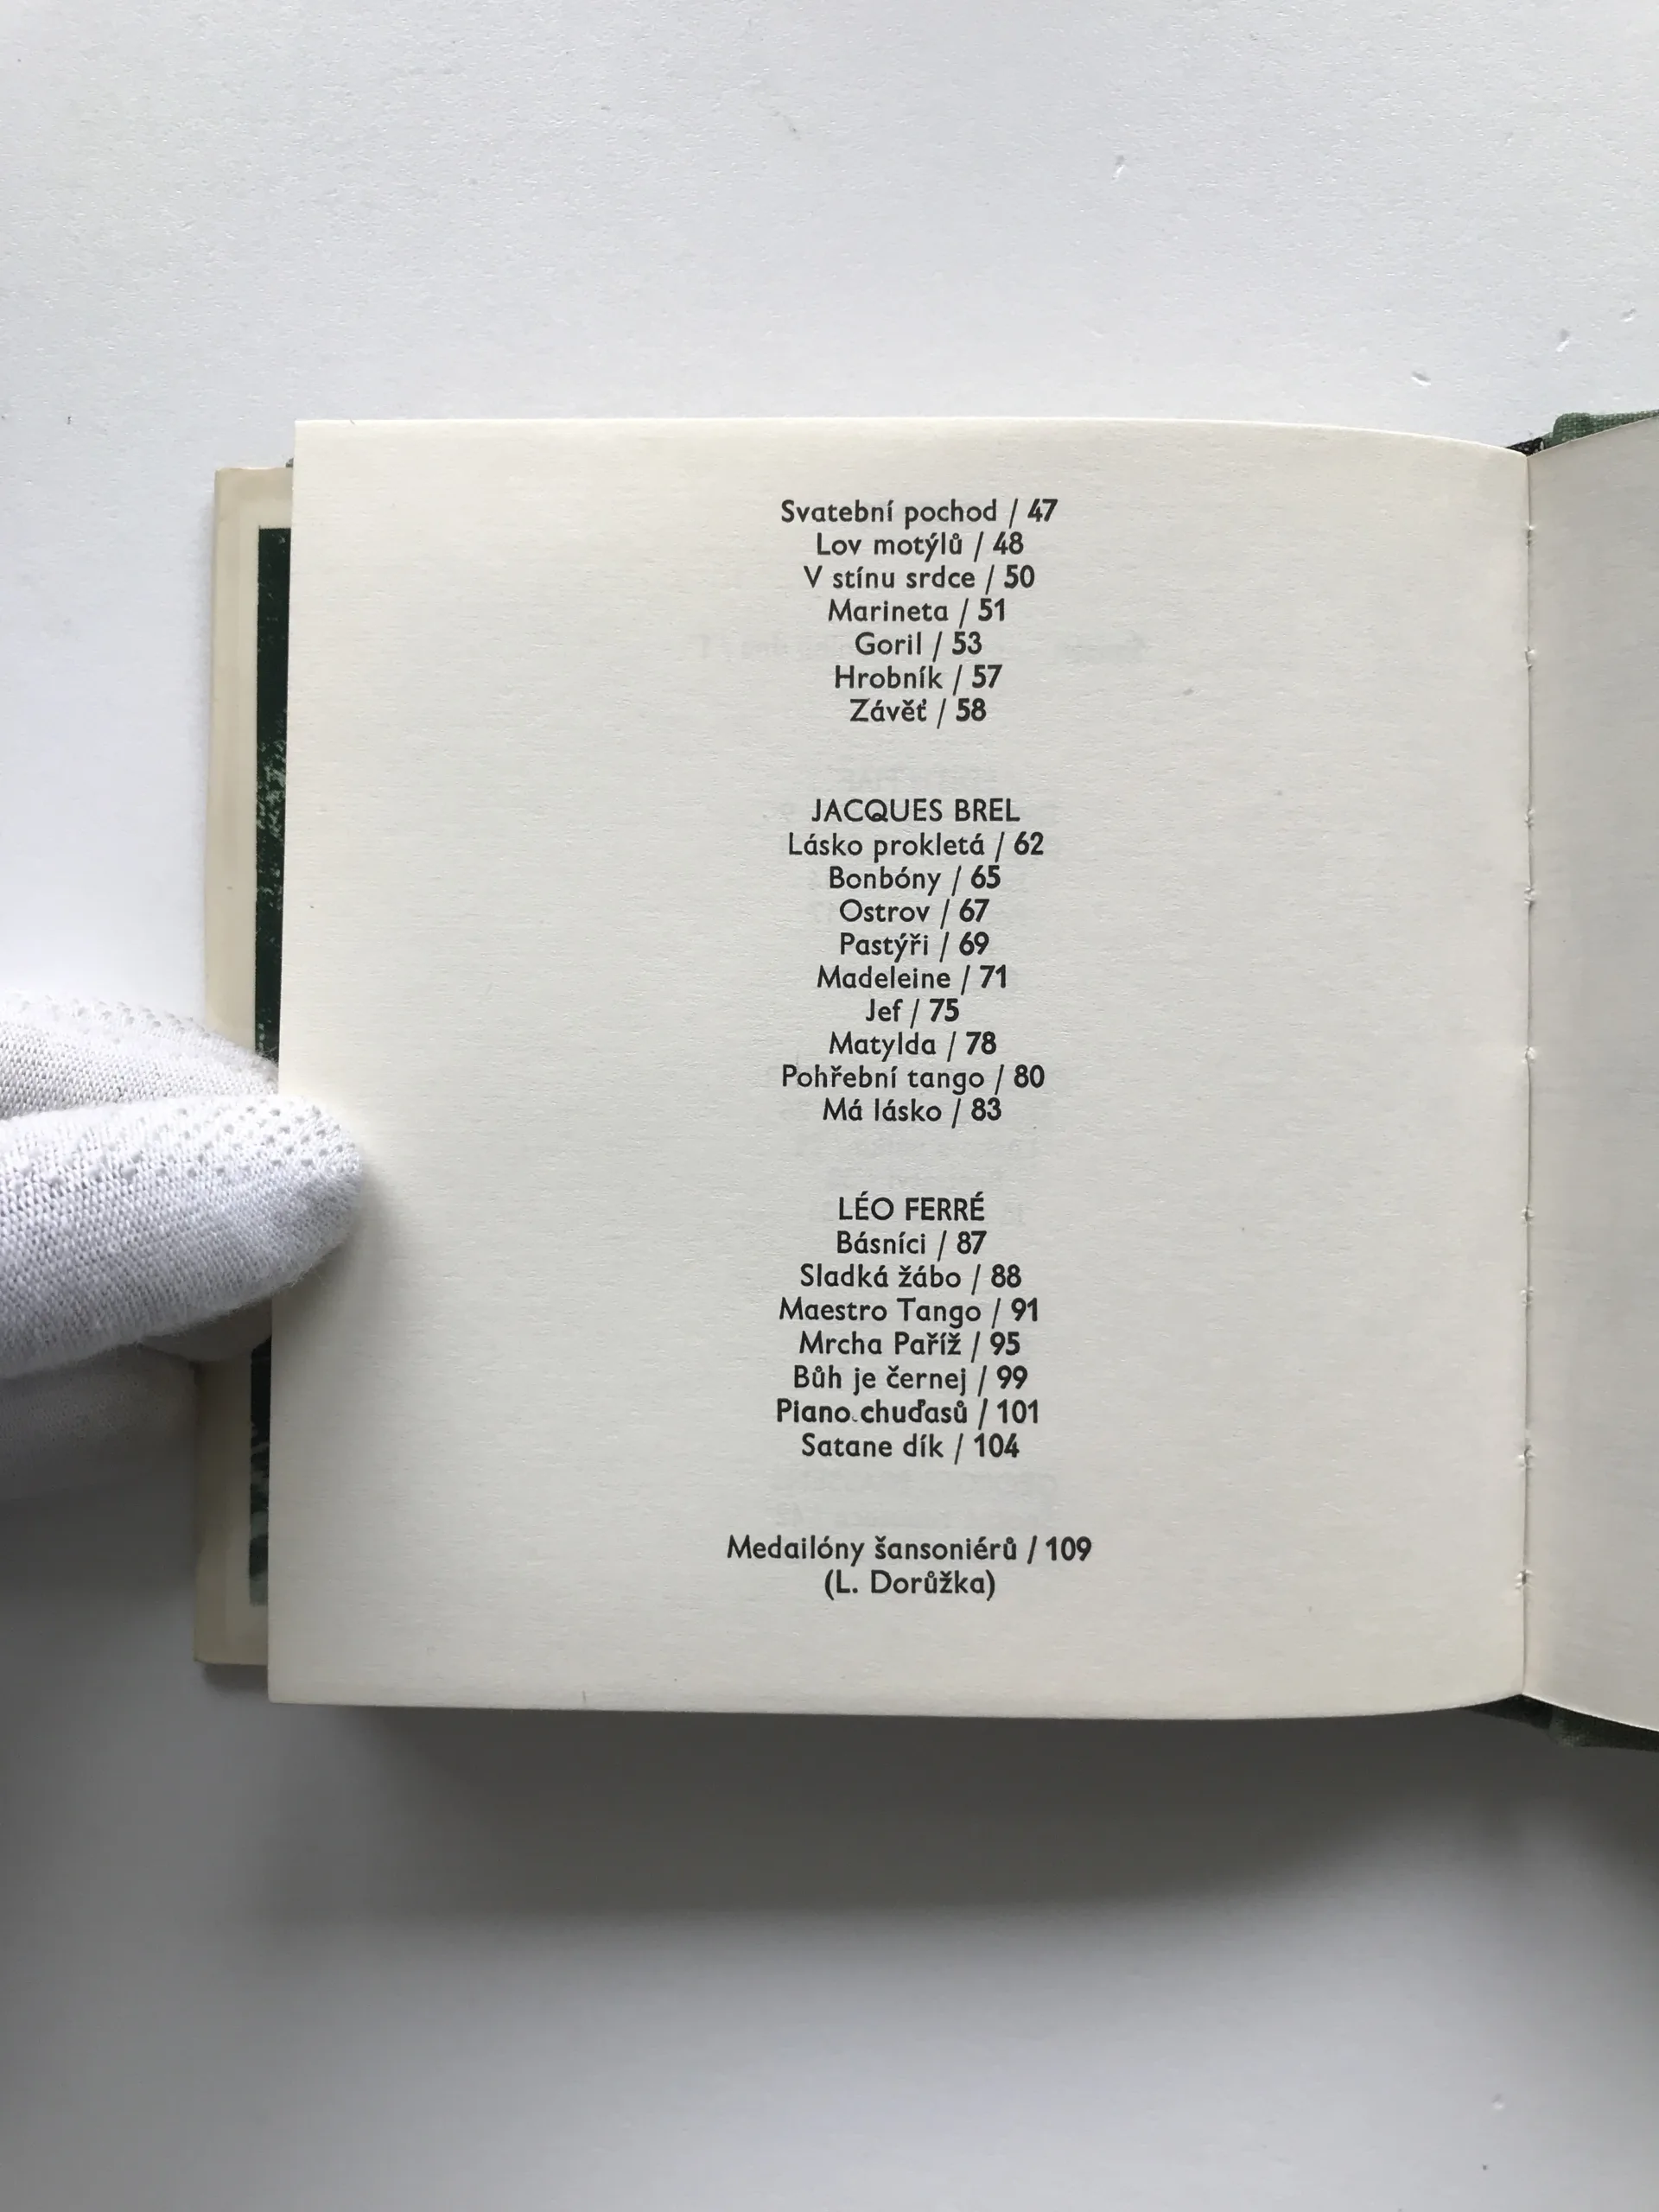 Svatební pochod / 47
Lov motýlů / 48
V stínu srdce / 50
Marineta / 51
Goril / 53
Hrobník / 57
Závěť / 58
JACQUES BREL
Lásko prokletá / 62
Bonbóny / 65
Ostrov / 67
Pastýři / 69
Madeleine / 71
Jef / 75
Matylda / 78
Pohřební tango / 80
Má lásko / 83
LÉO FERRÉ
Básníci / 87
Sladká žábo / 88
Maestro Tango / 91
Mrcha Paříž / 95
Bůh je černej / 99
Piano chuďasů / 101
Satane dík / 104
Medailóny šansoniérů / 109
(L. Dorůžka)